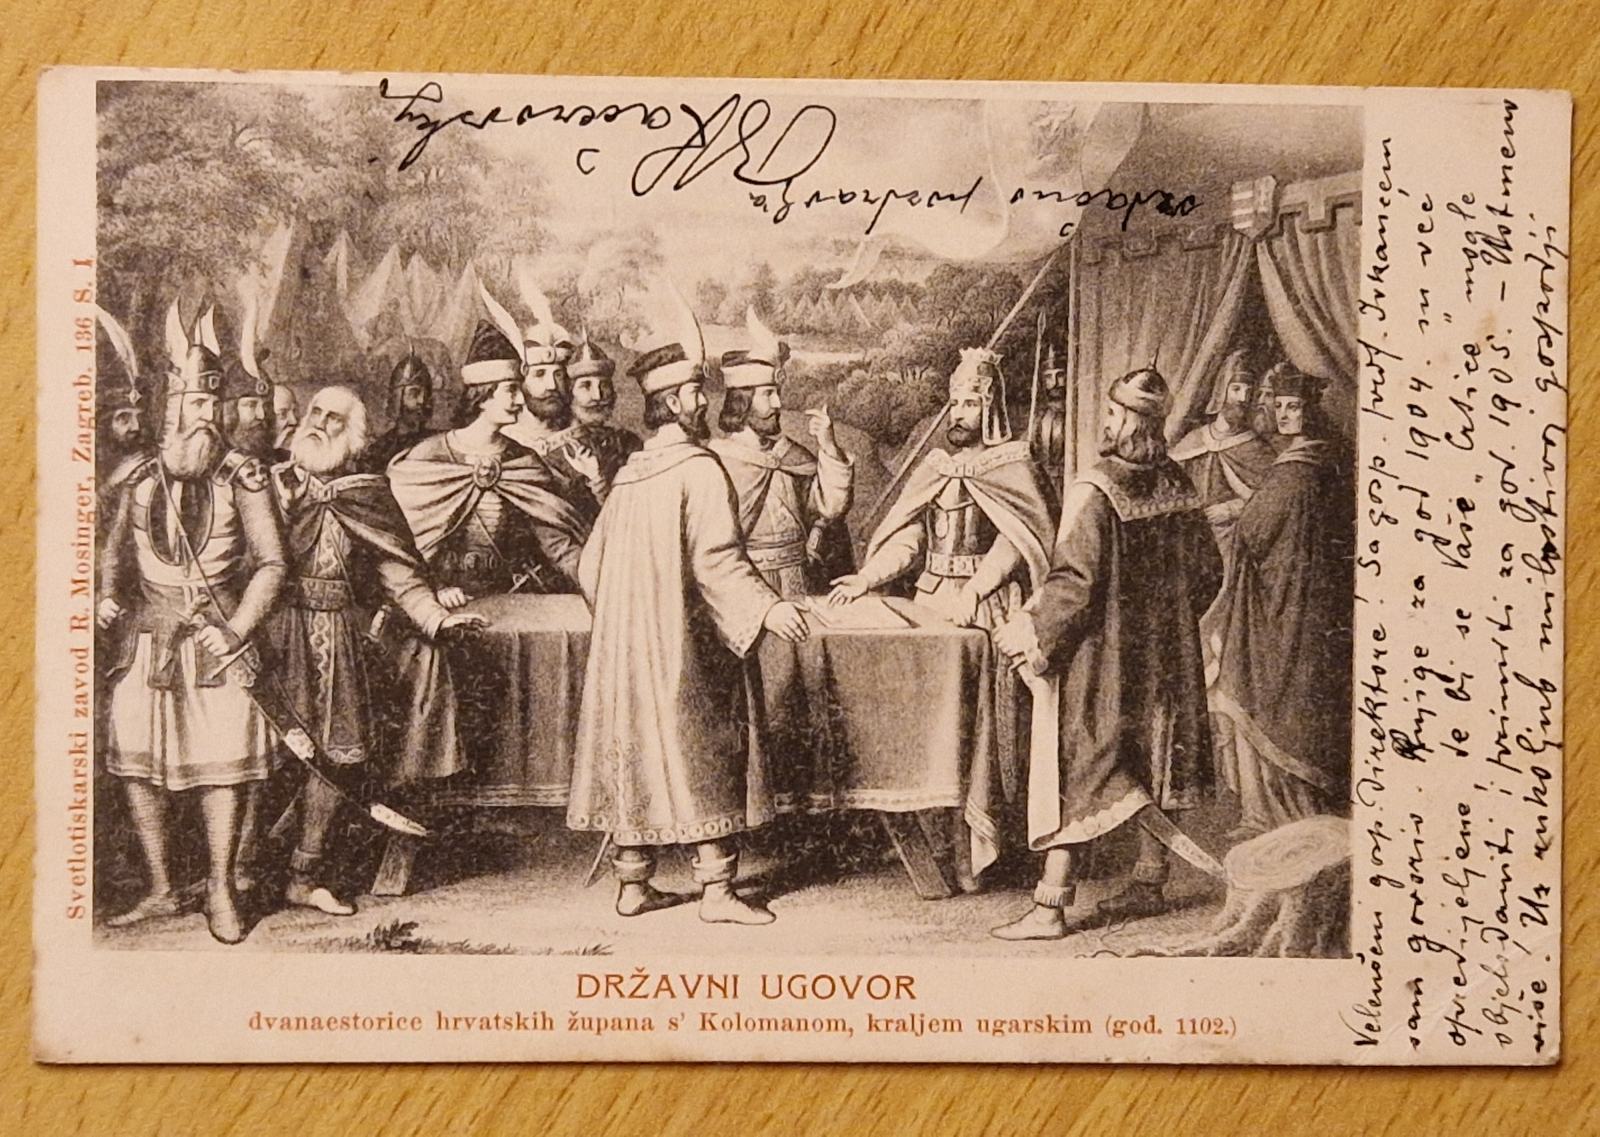 Svetlotiskarski zavod R. Mosinger, Zagreb. 136 S. I
DRŽAVNI UGOVOR
dvanaestorice hrvatskih župana s' Kolomanom, kraljem ugarskim (god. 1102.)
Veleučeni gosp. Direktore! Sa gosp. prof. Ivkanećem
sam govorio. Knjige za god 1904. su već
opredijeljene, te bi se Vaše "Crtice" mogle
objelodaniti i primiti za god. 1905. – Ustmeno
više! Uz rukoljub milostivoj gospodji
srdačno pozdravlja